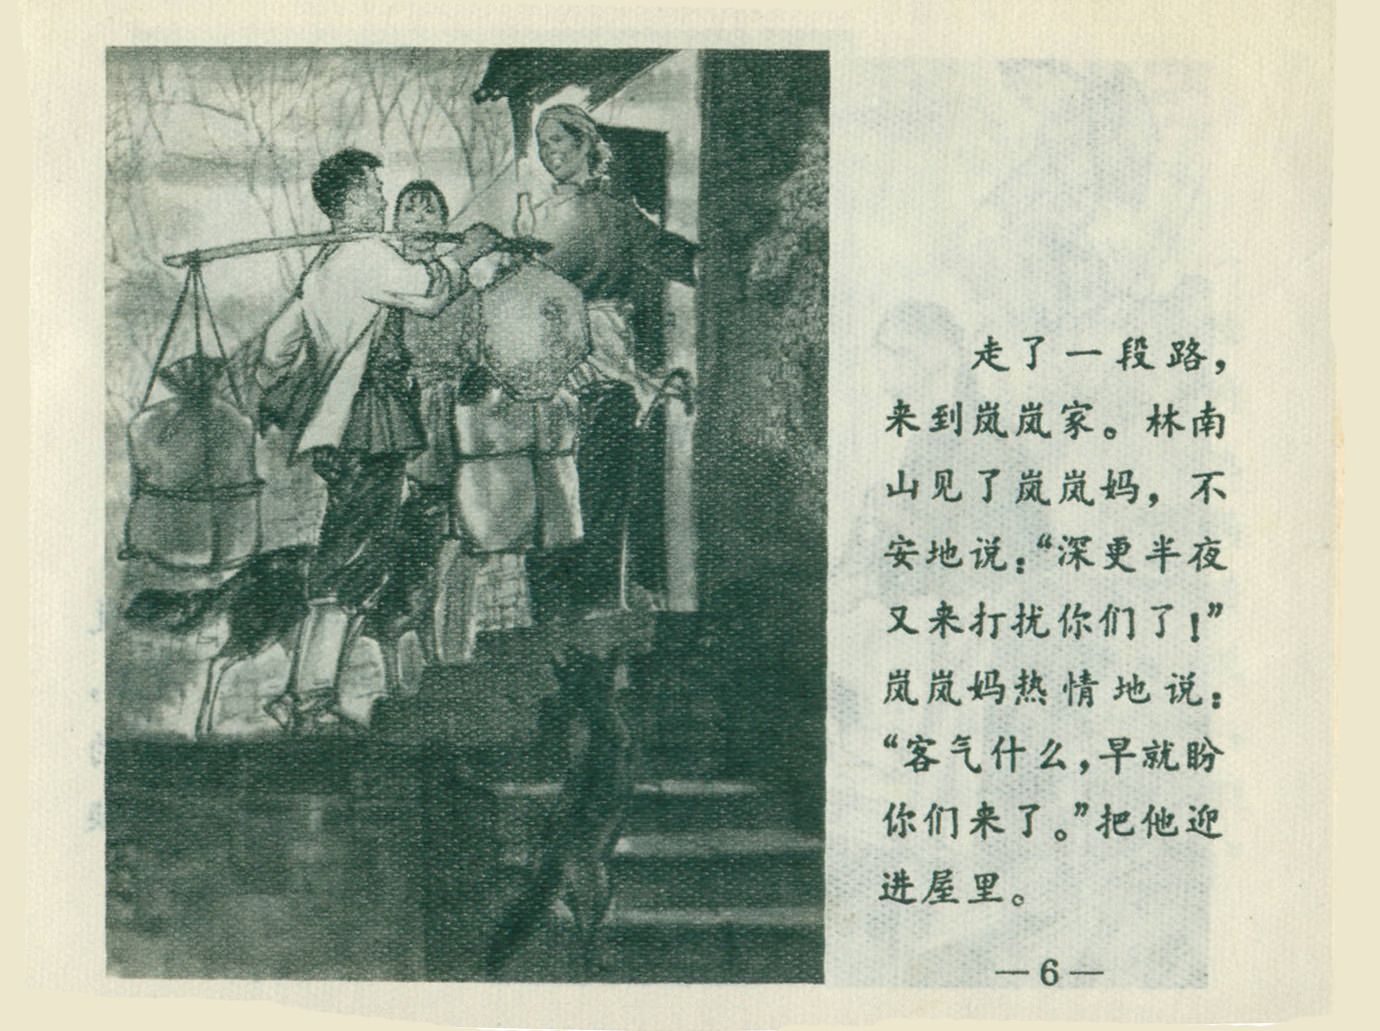 走了一段路，
来到岚岚家。林南
山见了岚岚妈，不
安地说：“深更半夜
又来打扰你们了！”
岚岚妈热情地说：
“客气什么，早就盼
你们来了。”把他迎
进屋里。
—6—